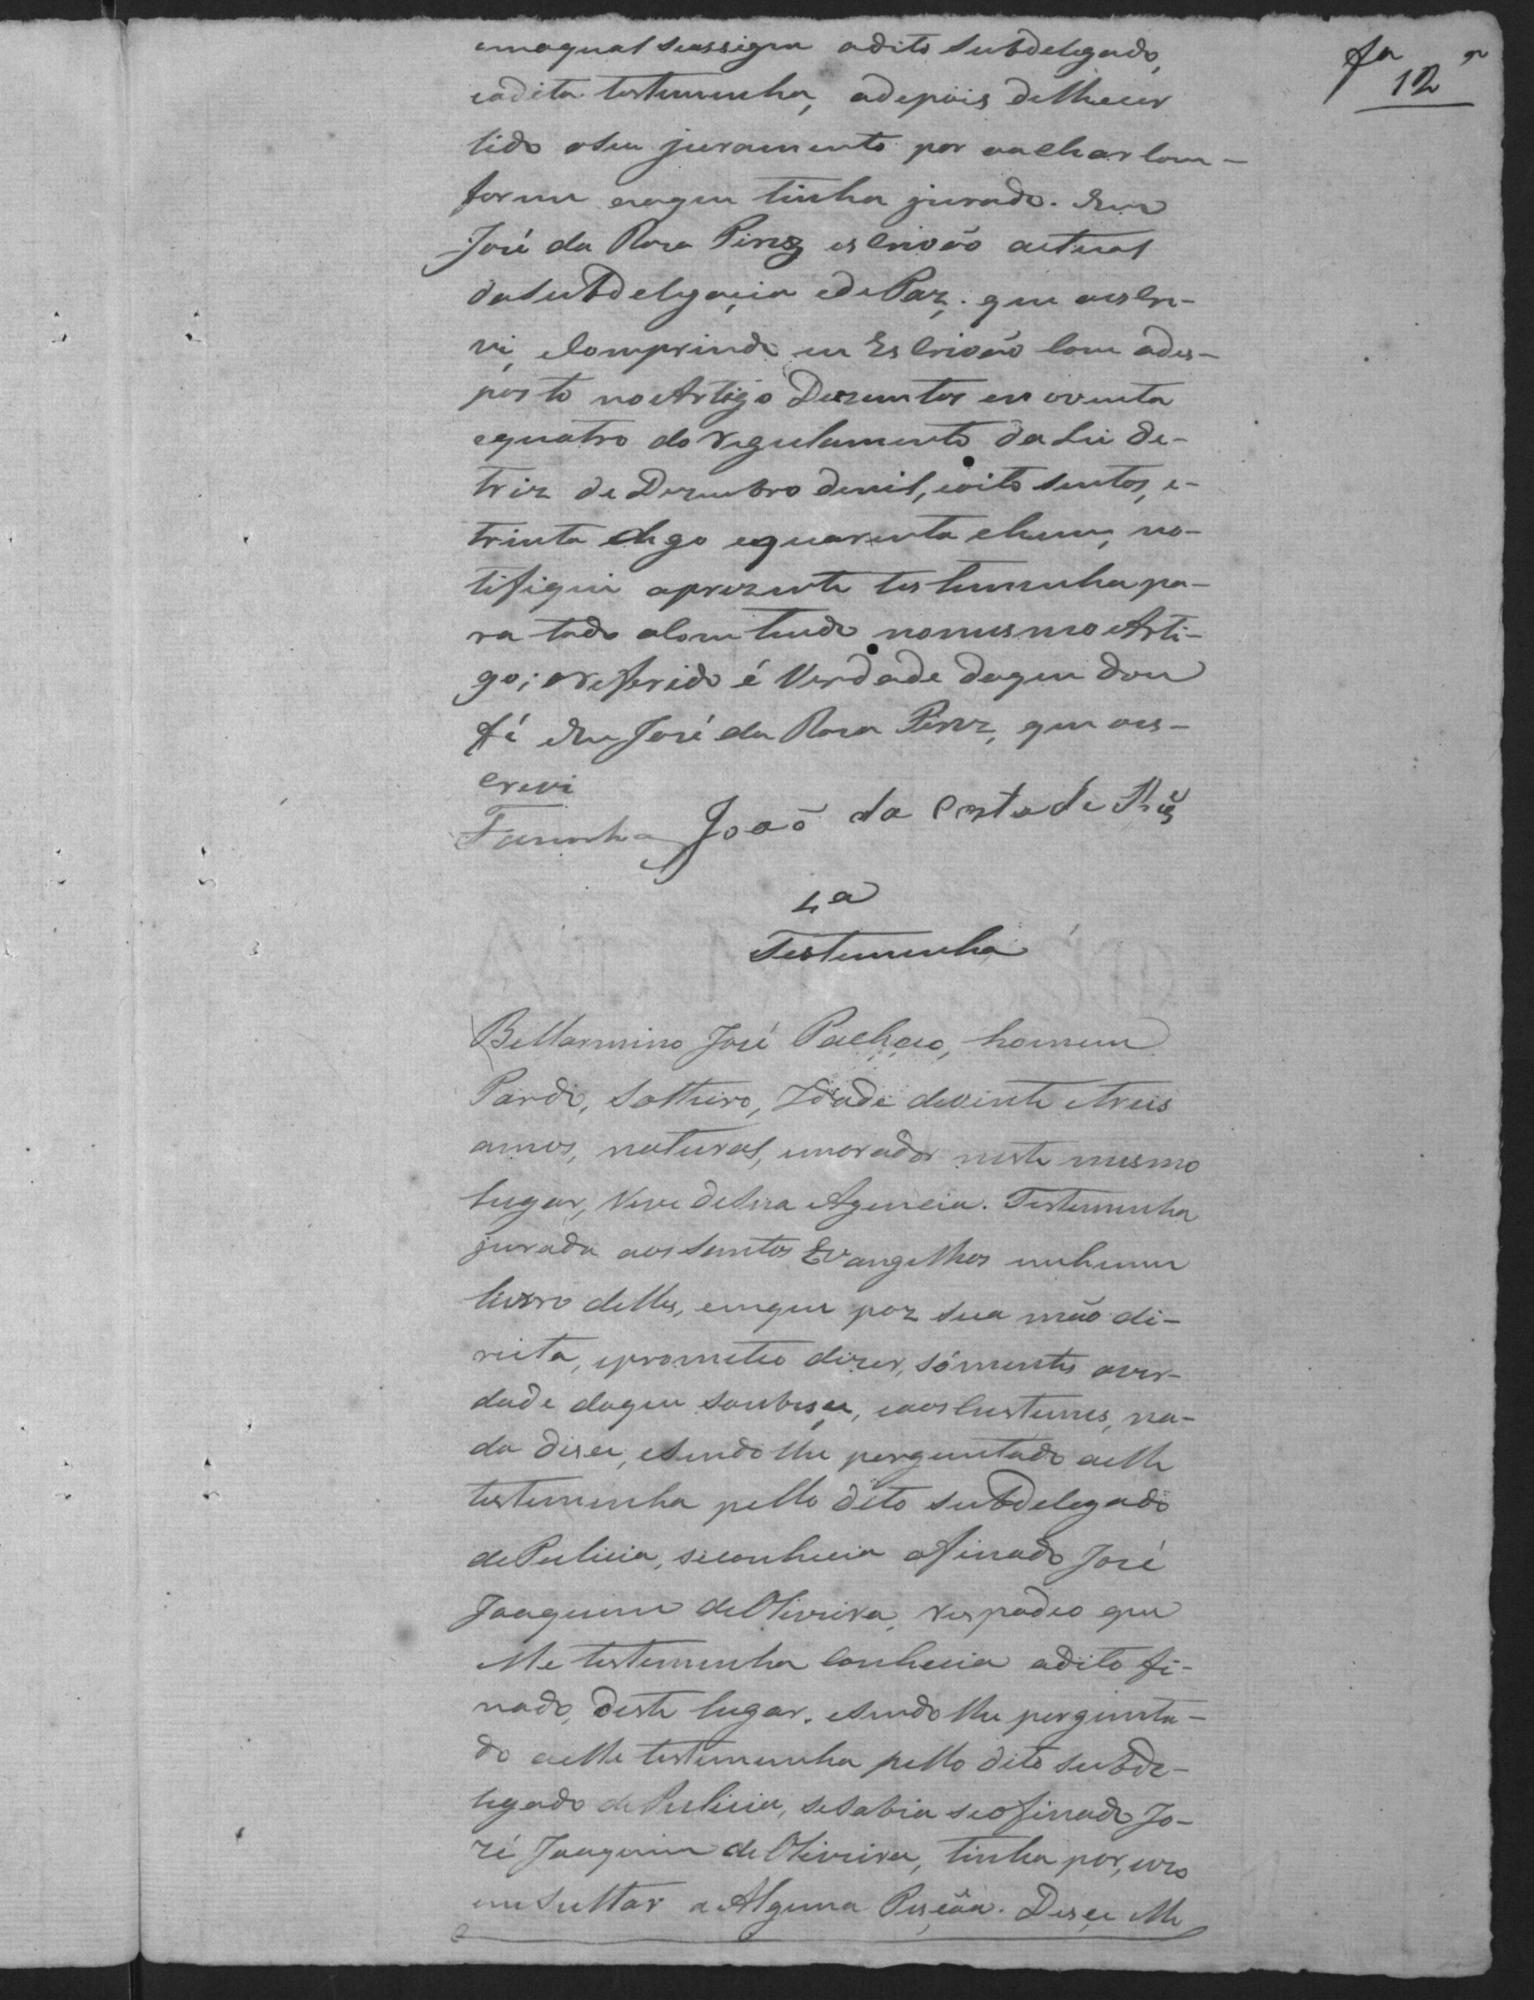 12
emaqual seassigna odito Subdelegado,
eadita testemunha, adepois delhecer
lido oseu juramento por oachar com-
forme eraque tinha jurado. Eeu
José da Roza Pirez escrivão actual
daSubdelegaçia edePaz. que oescri-
vi, eComprindo eu Escrivão com odes-
posto noArtigo Duzentos enoventa
equatro do regulamento da Lei de-
triz de Dezembro demil, eoito sentos, e-
trinta digo equarenta ehum, no-
tifiquei aprezente testemunha pa-
ra todo olomteudo nomesmo Arti-
go; oreferido é Verdade doque dou
fé Eeu José da Roza Pirez, que oes-
crevi
Farinha João da Costa de
4a
Testemunha
Bellarmino José Pacheco, homem
Pardo, Solteiro, Idade devinte etreis
annos, natural, emorador neste mesmo
lugar, Vive desua Agencia. Testemunha
jurada aos Santos Evangelhos emhum
livro delles, emque poz sua mão di-
reita, eprometeo dizer, sómentes aver-
dade doque soubeçe, eaos custumes, na-
da diser, esendo lhe perguntado aelle
testemunha pello dito Subdelegado
dePulicia, seconhecia ofinado José
Joaquim deOliveira, respodeo que
elle testemunha conhecia odito fi-
nado, deste lugar. esendo lhe pergunta-
do aelle testemunha pello dito Subde-
legado dePulicia, seSabia seofinado Jo-
zé Joaquim deOliveira, tinha por, uzo
emSultar a Alguma Peçôa. Diseçe elle